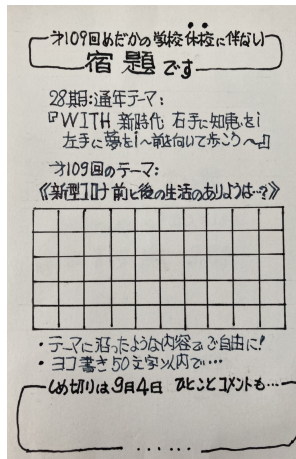 才109回めだかの学校休校に伴ない
宿題です
28期:通年テーマ:
『WITH新時代 右手に知恵をi
左手に夢をi~前を向いて歩こう~』
才109回のテーマ:
《新型コロナ前と後の生活のありようは…?》
・テーマに沿ったような内容でご自由に!
・ヨコ書き50文字以内で…
〆切りは9月4日 ひとことコメントも…